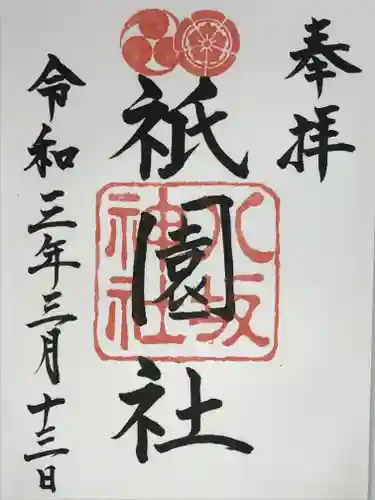 奉拝
祇園社
八坂
神社
令和三年三月十三日